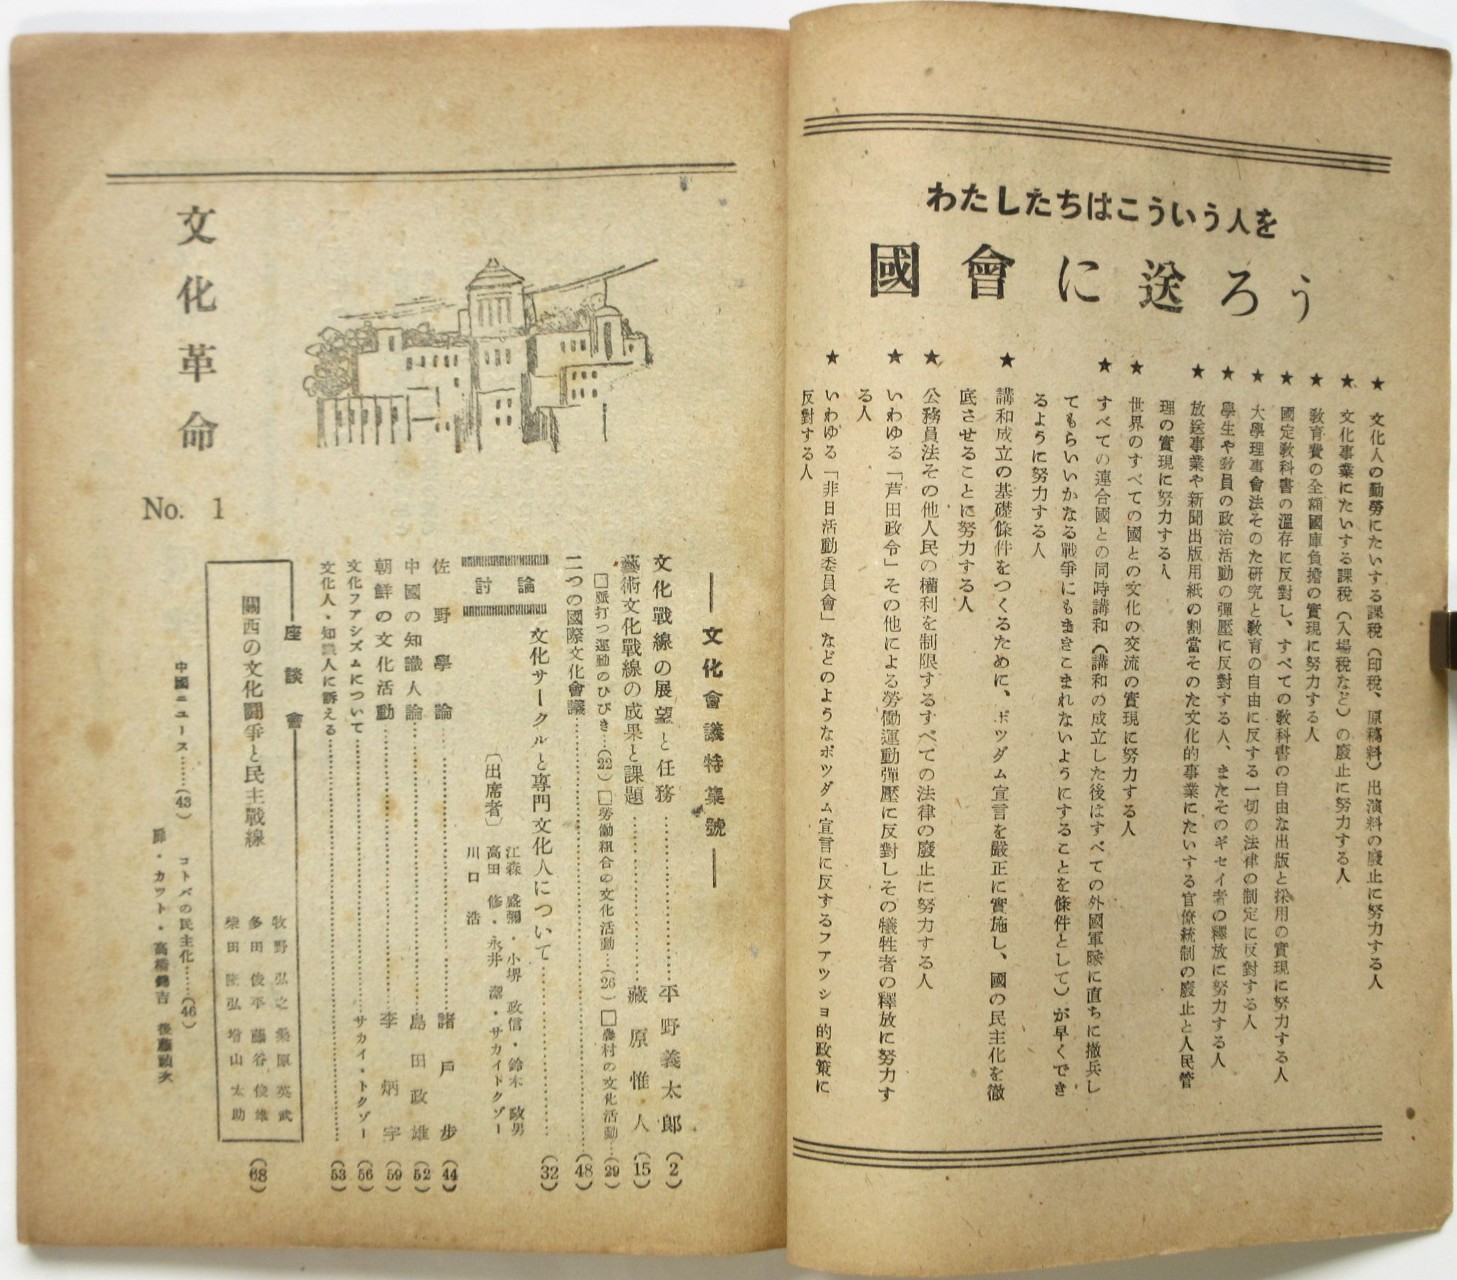 わたしたちはこういう人を
國會に送ろう
★ 文化人の勤勞にたいする課税(印税、原稿料)出演料の廢止に努力する人
★ 文化事業にたいする課税(入場税など)の廢止に努力する人
★ 教育費の全額國庫負擔の實現に努力する人
★ 國定教科書の溫存に反對し、すべての教科書の自由な出版と採用の實現に努力する人
★ 大學理事會法そのた研究と教育の自由に反する一切の法律の制定に反對する人
★ 學生や教員の政治活動の彈壓に反對する人、またそのギセイ者の釋放に努力する人
★ 放送事業や新聞出版用紙の割當そのた文化的事業にたいする官僚統制の廢止と人民管
理の實現に努力する人
★ 世界のすべての國との文化の交流の實現に努力する人
★ すべての連合國との同時講和(講和の成立した後はすべての外國軍隊に直ちに撤兵し
てもらいいかなる戰爭にもまきこまれないようにすることを條件として)が早くでき
るように努力する人
★ 講和成立の基礎條件をつくるために、ポツダム宣言を嚴正に實施し、國の民主化を徹
底させることに努力する人
★ 公務員法その他人民の權利を制限するすべての法律の廢止に努力する人
★ いわゆる「芦田政令」その他による勞働運動彈壓に反對しその犠牲者の釋放に努力す
る人
★ いわゆる「非日活動委員會」などのようなポツダム宣言に反するフアツショ的政策に
反對する人
文化革命
No. 1
——文化會議特集號——
文化戰線の展望と任務……平野義太郎(2)
藝術文化戰線の成果と課題……藏原惟人(15)
□脈打つ運動のひびき…(22) □勞働組合の文化活動…(26) □農村の文化活動…(29)
二つの國際文化會議……(48)
討論
文化サークルと専門文化人について……(32)
〔出席者〕
江森盛彌・小堺政信・鈴木政男
高田修・永井潔・サカイトクゾー
川口浩
佐野學論……諸戸歩(44)
中國の知識人論……島田政雄(52)
朝鮮の文化活動……李炳宇(59)
文化フアシズムについて……サカイ・トクゾー(56)
文化人・知識人に訴える……(53)
座談會
關西の文化鬪爭と民主戰線
牧野弘之 桑原英武
多田俊平 藤谷俊雄
柴田隆弘 増山太助
(68)
中國ニュース……(43)
コトバの民主化……(46)
扉・カツト・高橋錦吉 後藤禎次